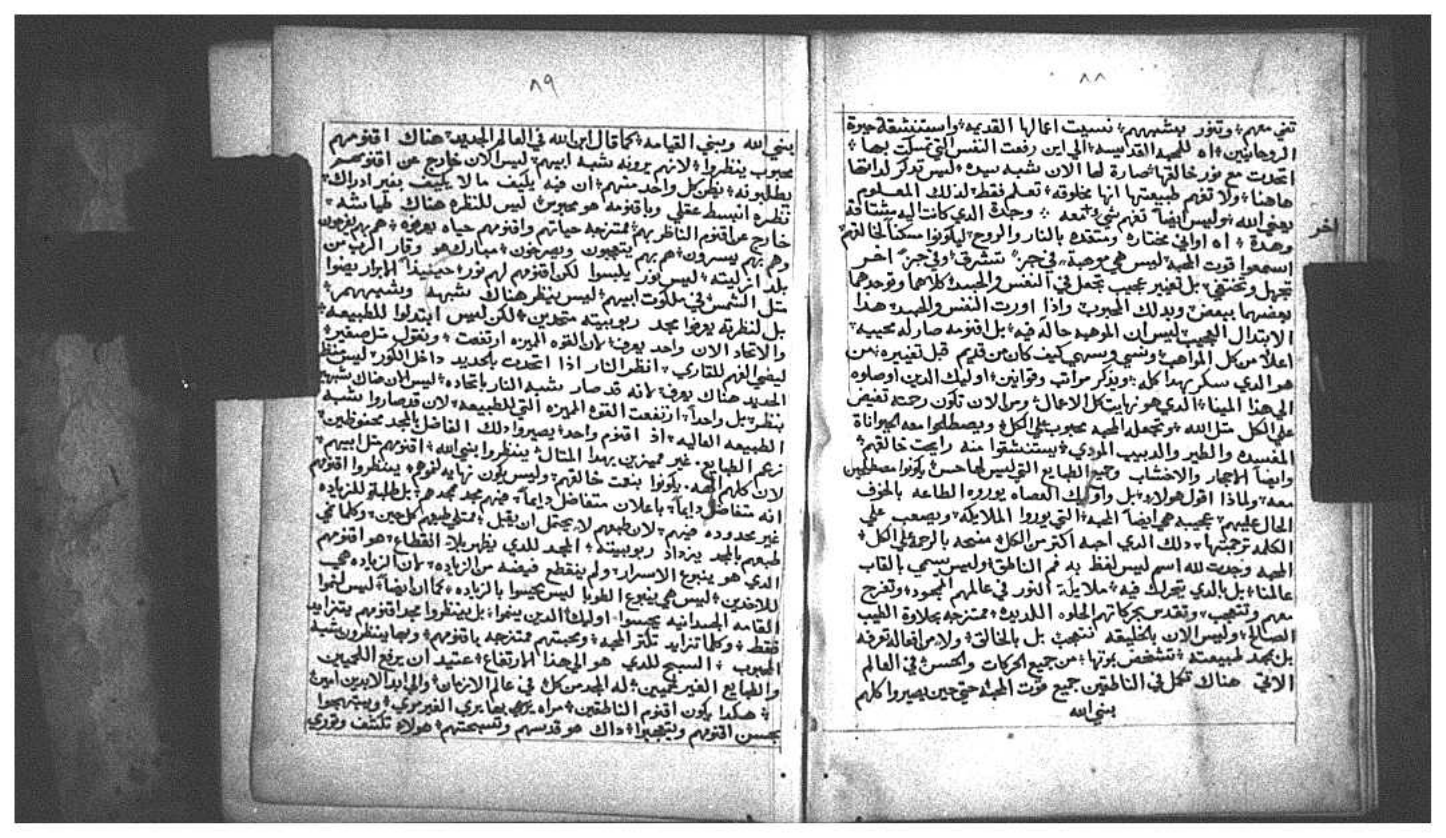 ٨٨
تفي معهم وتنور بشبههم نسيت اعمالها القديمه واستنشقة حيوة
الروحانيين اه للمحبه القدسيه الي اين رفعت النفس التي تمسكت بها
اتحدت مع نور خالقها صارة لها الان شبه سيده ليس تذكر لداتها
هاهنا ولا تفهم طبيعتها انها مخلوقه تعلم فقط لدلك المعلوم
يعني الله وليس ايضا تفهم شي معه وجدة الدي كانت اليه مشتاقة
وحدة اه اواني مختاره ومتقده بالنار والروح ليكونوا مسكنا لخالقهم
اخر
اسمعوا قوت المحبه ليس هي موهبة في جز تشرق وفي جز اخر
تجهل وتختفي بل تغيير عجيب تجعل في النفس والجسد كلاهما وتوحدهما
بعضهما ببعض وبدلك المحبوب واذا اورت النفس والجسد هدا
الابتدال العجيب ليس ان الموهبه حاله فيه بل اقنومه صار له محييه
اعلا من كل المواهب ونسي وسهي كيف كان من قديم قبل تغييره من
هو الدي سكر بهدا كله ويدكر مراتب وقوانين اوليك الدين اوصلوه
الي هذا المينا الدي هو نهايت كل الاعمال ومن الان تكون رحمته تفيض
علي الكل متل الله وتجعله المحبه محبوب علي الكل ويصطلحوا معه الحيواناة
المفسده والطير والدبيب المودي يستنشقوا منه رايحت خالقهم
وايضا الاحجار والاخشاب وجميع الطبايع التي ليس لها حس يكونوا مصطلحين
معه ولماذا اقول هولاء بل واوليك العصاه يوروه الطاعه بالخوف
الحال عليهم عجيبه هي ايضا المحبه التي يوروا الملايكه ويصعب علي
الكلمه ترجمتها دلك الدي احبه اكتر من الكل متحه بالرحمه علي الكل
المحبه وجدت لله اسم ليس لفظ به فم الناطق وليس يسمي بالقاب
عالمنا بل بالدي تتحرك فيه ملايكة النور في عالمهم المجهود وتفرح
معهم وتتعجب وتقدس بحركاتهم الحلوه اللديده ممتزجه بحلاوة الطيب
الصالح وليس الان بالخليقه تتعجب بل بالخالق ولا من افعاله تعرفه
بل بمجد طبيعته تشخص بوتها من جميع الحركات والحسن في العالم
الاتي هناك تكمل في الناطقين جميع قوت المحبه حتي حين يصيروا كلهم
بني الله
٨٩
بني الله وبني القيامه كما قال ابن الله في العالم الجديد هناك اقنومهم
محبوب ينظروا لانهم يرونه شبه ابيهم ليس الان خارج عن اقنومهم
يطلبونه يظن كل واحد منهم ان فيه يليف مالا يليف بغير ادراك
نظره انبسط عقلي وباقنومه هو محبوس ليس للنظره هناك طياشه
خارج عن اقنوم الناظر بهم ممتزجه حياتهم واقنومهم حياه يعرفوه هم بهم يفرحون
وهم بهم يسرون هم بهم يتعجبون ويصرخون مبارك هو وقار الرب من
بلد ازليته ليس نور يلبسوا لكن اقنومهم لهم نور حينيذا الابرار يضوا
متل الشمس في ملكوت ابيهم ليس ينظر هناك شبهه وشبههم
بل لنظرته يعرفوا مجد ربوبيته متحدين لكن ليس ابتدلوا للطبيعه
والاتحاد الان واحد يعرف لان القوه المميزه ارتفعت ونقول متل صغير
ليضي الفهم للقاري انظر النار اذا اتحدت بالحديد داخل الكور ليس تنظر
الحديد هناك يعرف لانه قد صار شبه النار باتحاده ليس الان هناك شبهين
ينظر بل واحدا ارتفعت القوه المميزه التي للطبيعه لان قد صاروا شبه
الطبيعه العاليه اذ اقنوم واحد يصيروا دلك الفاضل بالمجد محفوظين
زعم الطبايع غير مميزين بهدا المتال ينظروا بني الله اقنومهم متل ابيهم
لان كلهم الهه يكونوا بنعت خالقهم وليس يكون نهايه لفرحهم ينظروا اقنومهم
انه متفاضل دايما باعلان متفاضل دايما فيهم مجد مجدهم بل طلبة للزياده
غير محدوده فيهم لان طبعهم لا يحتمل ان يقبل ممتلي طبعهم كل حين وكلما يمتلي
طبعهم بالمجد يزداد ربوبيته المجد للدي يظهر بلا انقطاع هو اقنومهم
الدي هو ينبوع الاسرار ولم ينقطع فيضه من الزياده لان الزياده هي تجب
للاخدين ليس هي ينبوع الطوبا ليس يحبسوا بالزياده كما ان ايضا ليس لنموا
القامه الجسدانيه يحبسوا اوليك الدين ينموا بل ينظروا مجد اقنومهم يتزايد
فقط وكلما تزايد تكتر المحبه ومحبتهم ممتزجه باقنومهم وبها ينظرون شبه
المحبوب السبح للدي هو الي هذا الارتفاع عتيد ان يرفع اللحميين
والطبايع الغير لحميين له المجد من كل في عالم الازمان والي ابد الابدين امين
هكدا يكون اقنوم الناطقين مراه بها يري الغير مري ويبتهجوا
بحسن اقنومهم ويتعجبوا داك هو قدسهم وتسبحتهم هولاء تكشف وتوري